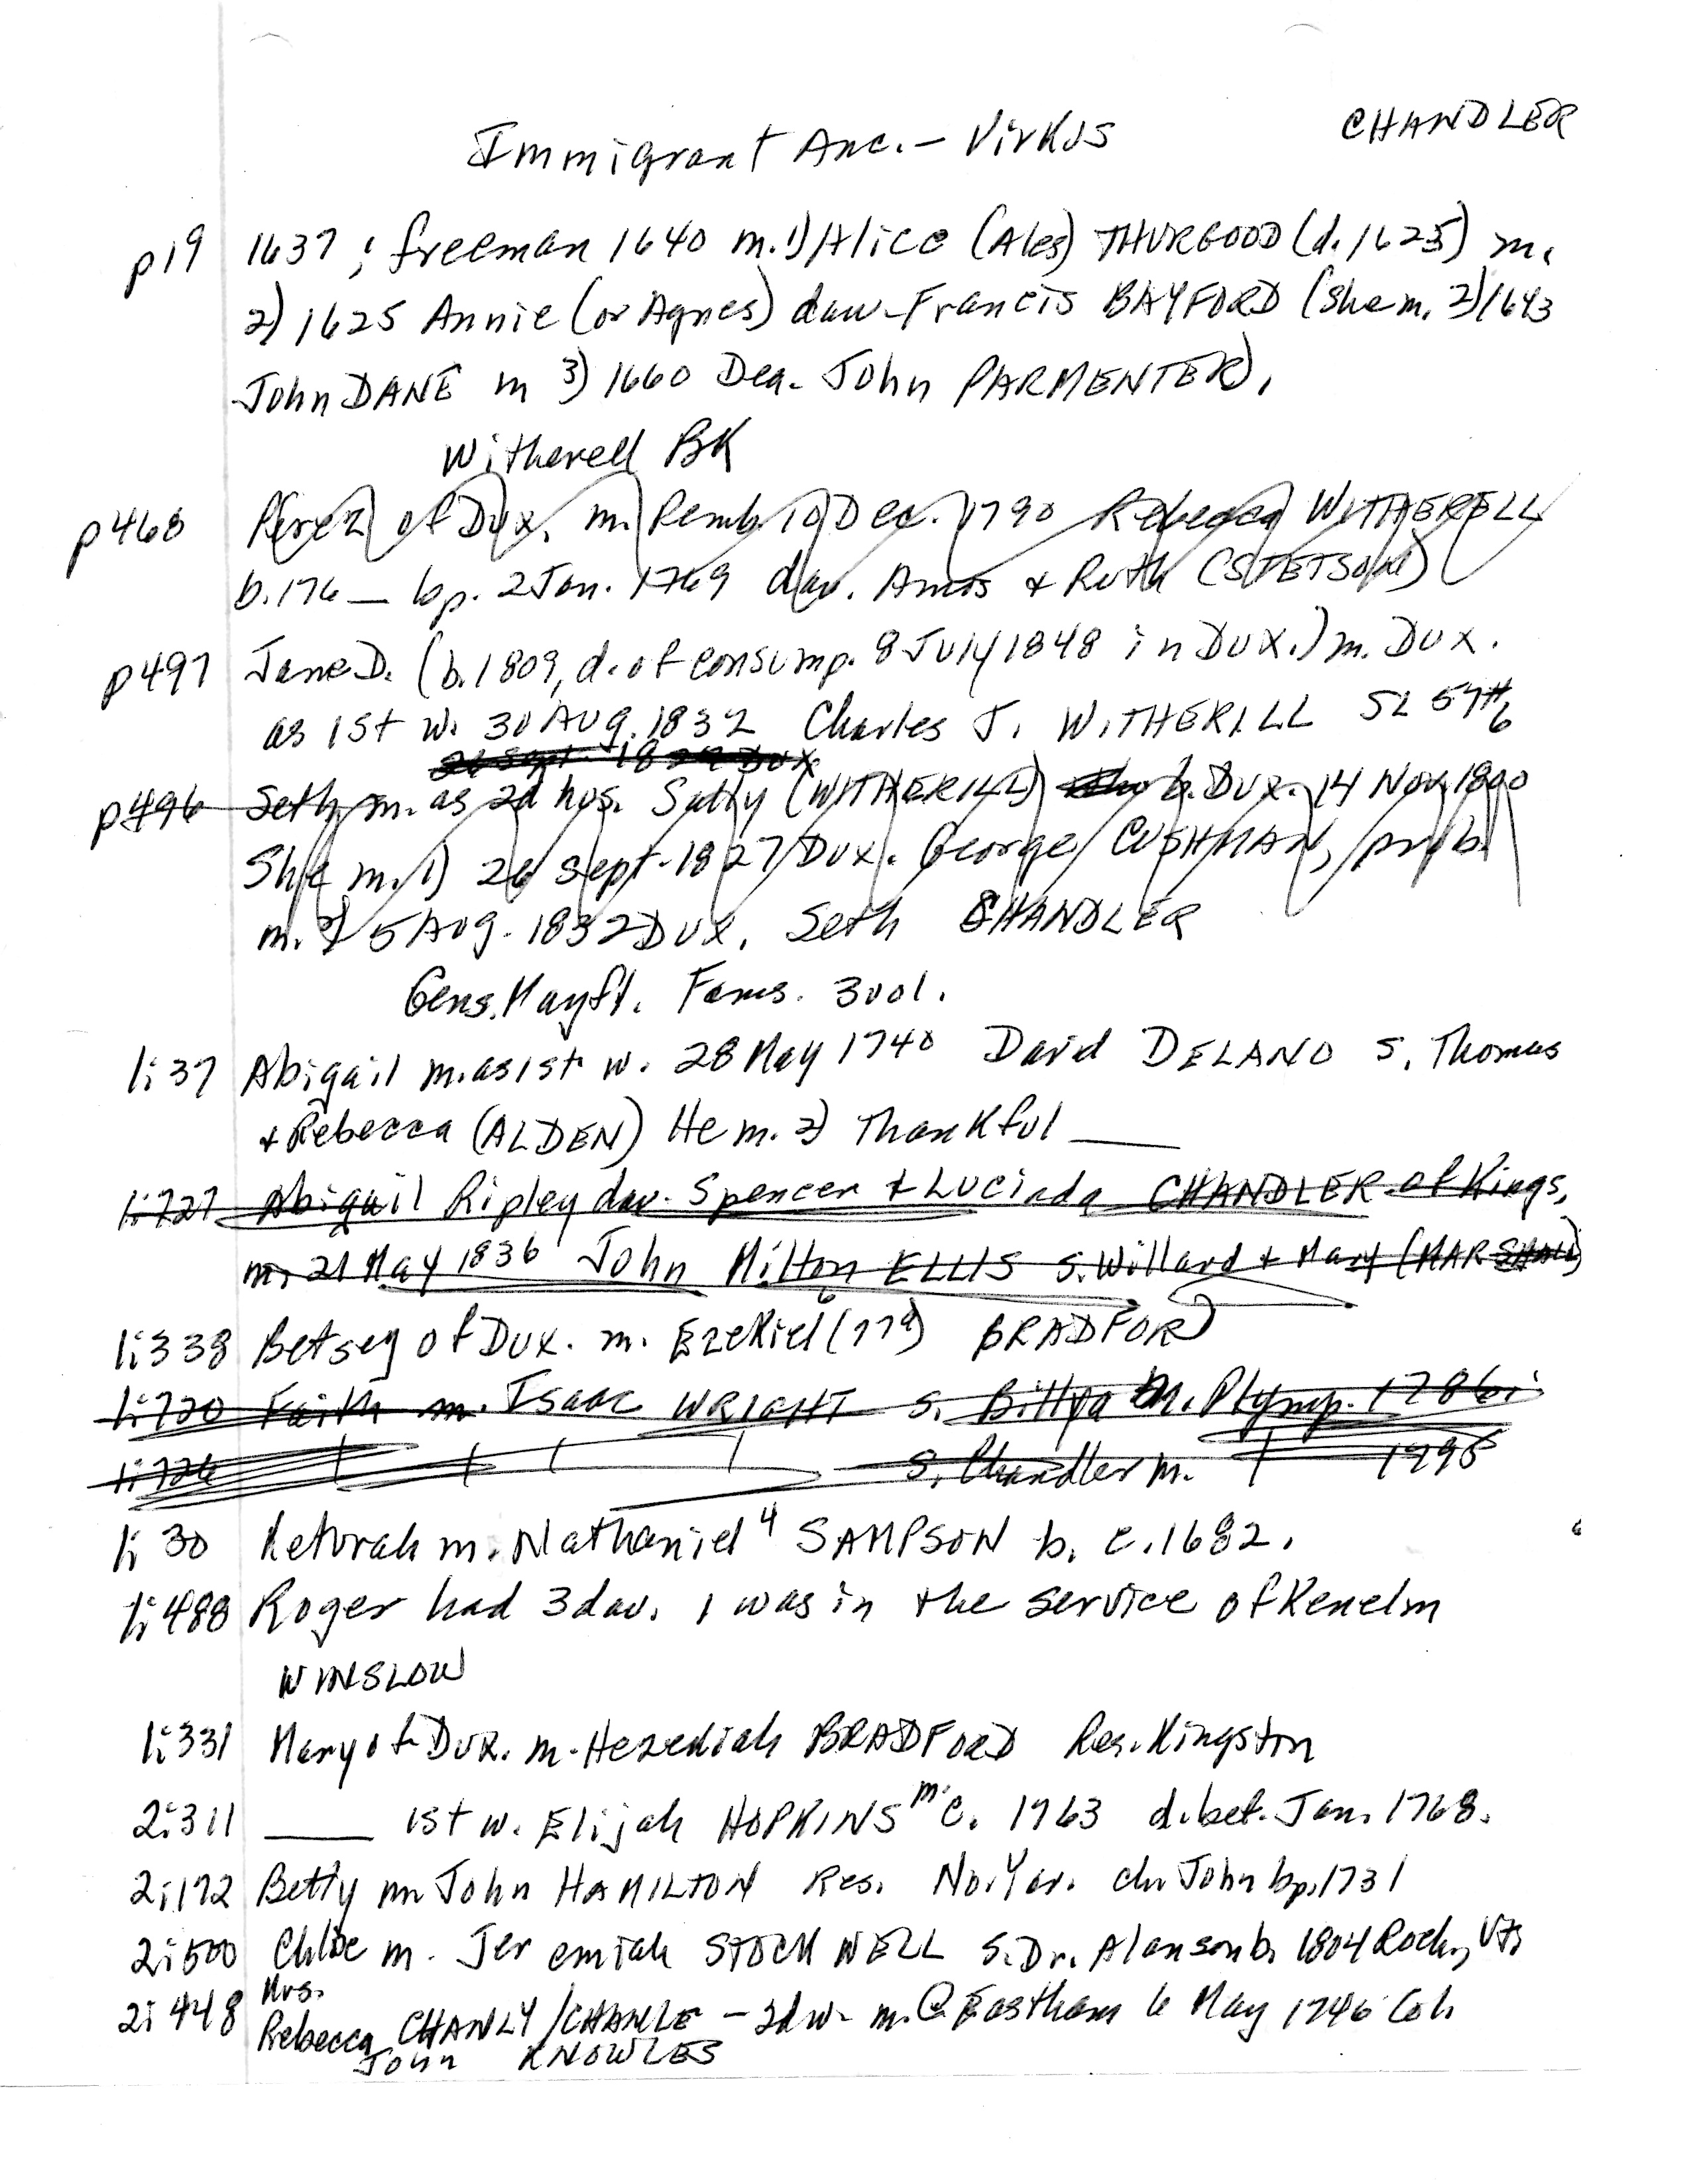 CHANDLER
Immigrant Anc. - Virkus
p19 1637; freeman 1640 m. 1) Alice (Ales) THURGOOD (d. 1625) m.
2) 1625 Annie (or Agnes) dau-Francis BAYFORD (she m. 2) 1643
John DANE m 3) 1660 Dea. John PARMENTER).
Witherell BK
p468 Perez of Dux. m. Pemb. 10 Dec. 1790 Rebecca WITHERELL
b. 176_ bp. 2 Jan. 1769 dau. Amos + Ruth (STETSON)
p497 Jane D. (b. 1809, d. of consump. 8 July 1848 in Dux.) m. Dux.
as 1st w. 30 Aug. 1832 Charles J. WITHERILL SL 57#6
26 Sept. 1827 Dux
p496 Seth m. as 2d hus. Sally (WITHERILL) b. Dux. 14 Nov. 1800
She m. 1) 26 Sept. 1827 Dux. George CUSHMAN, prob.
m. 2) 5 Aug. 1832 Dux. Seth CHANDLER
Gens. Mayfl. Fams. 3 vol.
1:37 Abigail m. as 1st w. 28 May 1740 David DELANO s. Thomas
+ Rebecca (ALDEN) He m. 2) Thankful ____
1:727 Abigail Ripley dau. Spencer + Lucinda CHANDLER of Kings.
m. 21 May 1836 John Milton ELLIS s. Willard + Mary (MARSHALL)
1:338 Betsey of Dux. m. Ezekiel 6 (179) BRADFORD
1:720 Faith m. Isaac WRIGHT s. Billya m. Plymp. 1786
1:726 s. Chandler m. 1795
1:30 Keturah m. Nathaniel 4 SAMPSON b. c. 1682.
1:488 Roger had 3 dau. 1 was in the service of Kenelm
WINSLOW
1:331 Mary of Dux. m. Hezediah BRADFORD Res. Kingston
2:311 ____ 1st w. Elijah HOPKINS m. c. 1763 d. bet. Jan. 1768.
2:172 Betty m John HAMILTON Res. No. Yar. ch. John bp. 1731
2:500 Chloe m. Jeremiah STOCKWELL s. Dr. Alanson b. 1804 Roch., Vt.
2:448 Mrs.
Rebecca CHANLY/CHANLE - 2d w. m. @ Eastham 6 May 1746 Col.
John KNOWLES